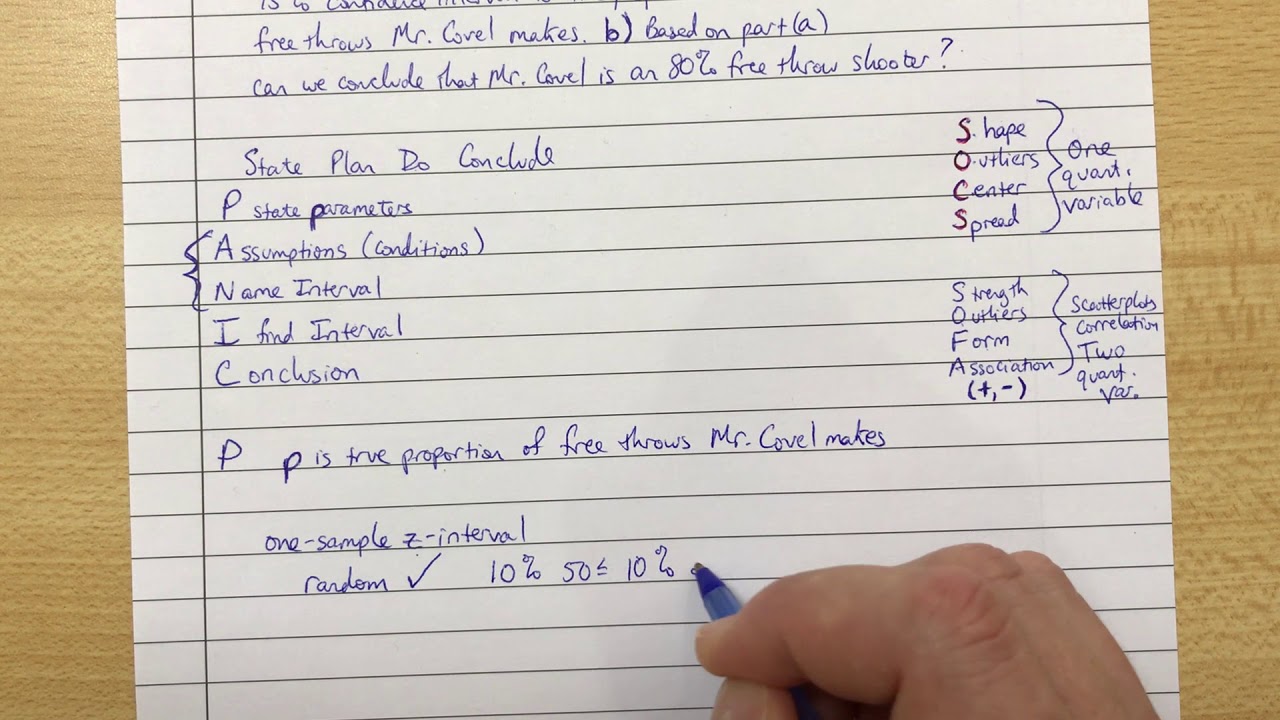 free throws Mr. Covel makes. b) Based on part (a)
can we conclude that Mr. Covel is an 80% free throw shooter?
State Plan Do Conclude
P state parameters
Assumptions (conditions)
Name Interval
I find Interval
Conclusion
Shape
Outliers
Center
Spread
One
quant.
variable
Strength
Outliers
Form
Association
(+, -)
Scatterplots
Correlation
Two
quant.
var.
P p is true proportion of free throws Mr. Covel makes
one-sample z-interval
random ✓ 10% 50 ≤ 10%